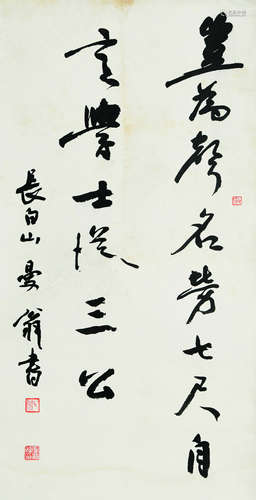 豈為聲名勞七尺自
言學士三公
長白山曼翁書